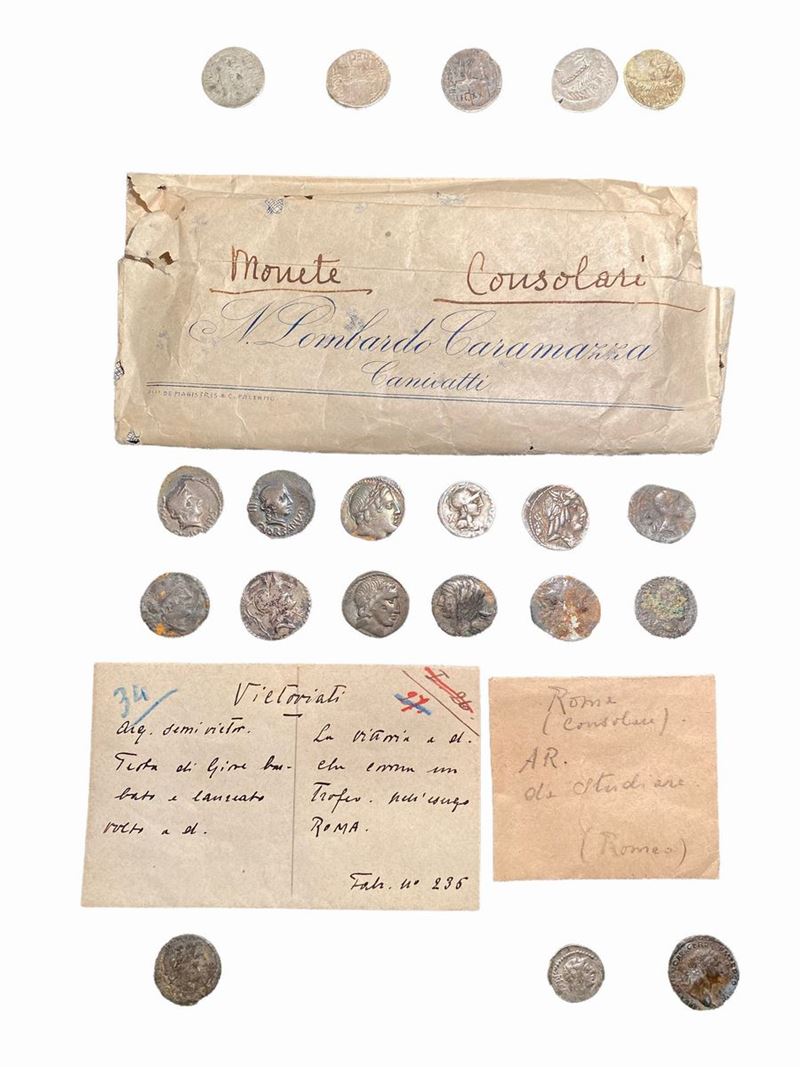 Monete Consolari
N. Lombardo Caramazza
Canicatti
DE MAGISTRIS & C. PALERMO
34
Victoriati
Arg. semi victor.
Testa di Giove bar-
bato e laureato
volto a d.
La vittoria a d.
che corona un
Trofeo. nell'esergo
ROMA.
Fabr. nº 236
Roma
(Consolari).
AR.
da Studiare
(Romeo)
DORSANVS